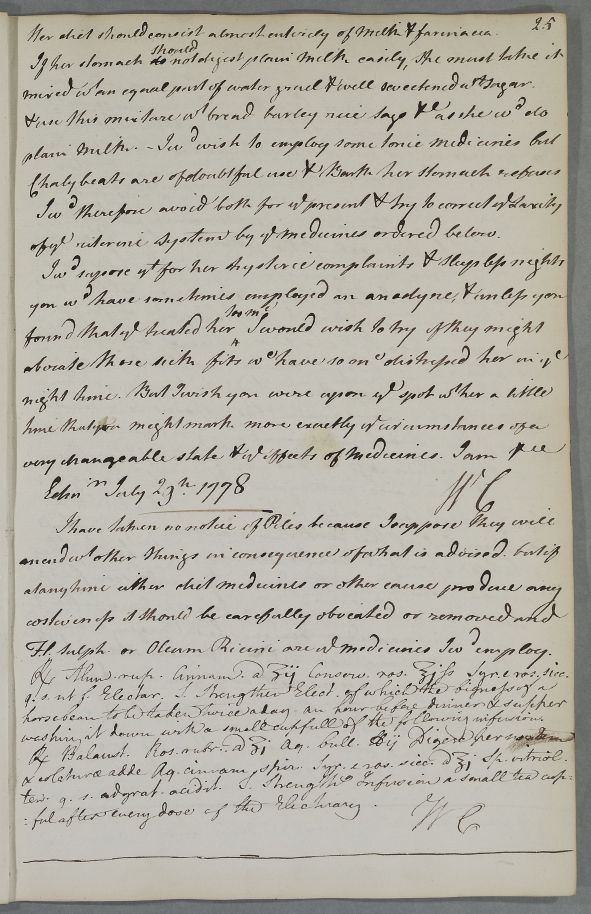 25
Her diet should consist almost entirely of Milk & farinacea.
If her stomach should not digest plain Milk easily, she must take it
mixed wt an equal part of water gruel & well sweetened wt Sugar.
& use this mixture wt bread barley rice Sago &c as she wd do
plain Milk. - I wd wish to employ some tonic medicines but
Chalybeats are of doubtful use & Bark her stomach refuses
I wd therefore avoid both for ye present & try to correct ye Laxity
of ye uterine System by ye medicines ordered below.
I wd supose yt for her hysteric complaints & sleepless nights
you wd have sometimes employed an anodyne, & unless you
found that yt heated her too mch I would wish to try if they might
obviate those sick fits wc have so on distressed her in ye
night time. But I wish you were upon ye spot wt her a little
time that you might mark more exactly ye circumstances of a
very changeable state & ye effects of Medicines. I am &ce
Edinr July 23d 1778 W C
I have taken no notice of Piles because I suppose they will
mend wt other things in consequence of what is advised. but if
at any time either diet medicines or other cause produce any
costiveness it should be carefully obviated or removed and
Fl. sulph. or Oleum Ricini are ye medicines I wd employ.
℞ Alum. rup. Cinnam. a ʒij Conserv. ros. ℥jſs Syr. e ros. sicc.
q. s. ut f. Electar. S. Strengthen Elect. of which the bigness of a
horsebean to be taken twice a day an hour before dinner & supper
washing it down with a small cupfull of the following infusion.
℞ Balaust. Ros. rubr. a ʒj Aq. bull. ℔ij Digere per
& colaturæ adde Aq. cinnam. spir. Syr. e ros. sicc. a ℥j Sp. vitriol.
ten. q. s. ad grat. acidit. S. Strengthg Infusion a small tea cup=
=ful after every dose of the Electuary. W C